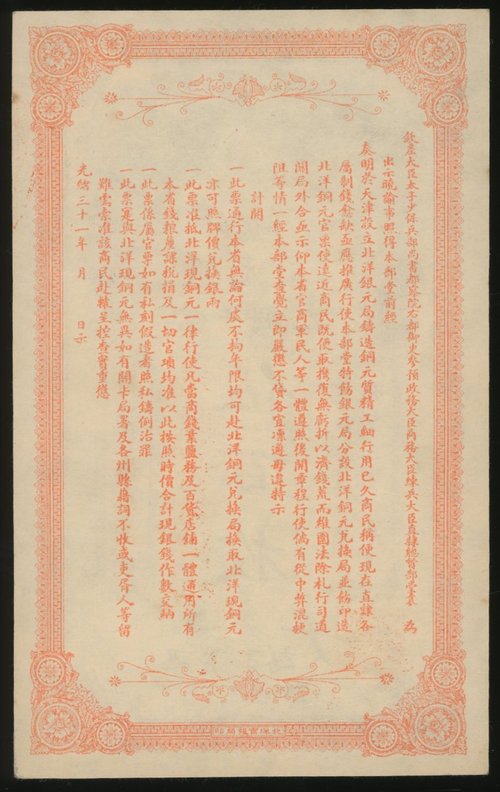 欽差大臣太子少保兵部尚書都察院右都御史參預政務大臣商務大臣練兵大臣直隸總督部堂袁　為
出示曉諭事照得本部堂前經
奏明於天津設立北洋銀元局鑄造銅元質精工細行用已久商民稱便現在直隸各
屬制錢愈缺亟應推廣行使本部堂特飭銀元局分設北洋銅元兌換局並飭印造
北洋銅元官票使遠近商民既便取攜復無虧折以濟錢荒而維圜法除札行司道
關局外合亟示仰本省官商軍民人等一體遵照後開章程行使倘有從中弊混欺
阻等情一經本部堂查覺立即嚴懲不貸各宜凜遵毋違特示
計開
一此票通行本省無論何處不拘年限均可赴北洋銅元兌換局換取北洋現銅元
亦可照牌價兌換銀兩
一此票准抵北洋現銅元一律行使凡當商錢業鹽務及百貨店鋪一體通用所有
本省錢糧廣課稅捐及一切官項均准以此按照時價合計現銀錢作數交納
一此票係屬官票如有私刻假造者照私鑄例治罪
一此票寔與北洋現銅元無異如有關卡局署及各州縣藉詞不收或吏胥人等留
難需索准該商民赴轅呈控查實重懲
光緒三十一年　月　　日示
北洋官報局印